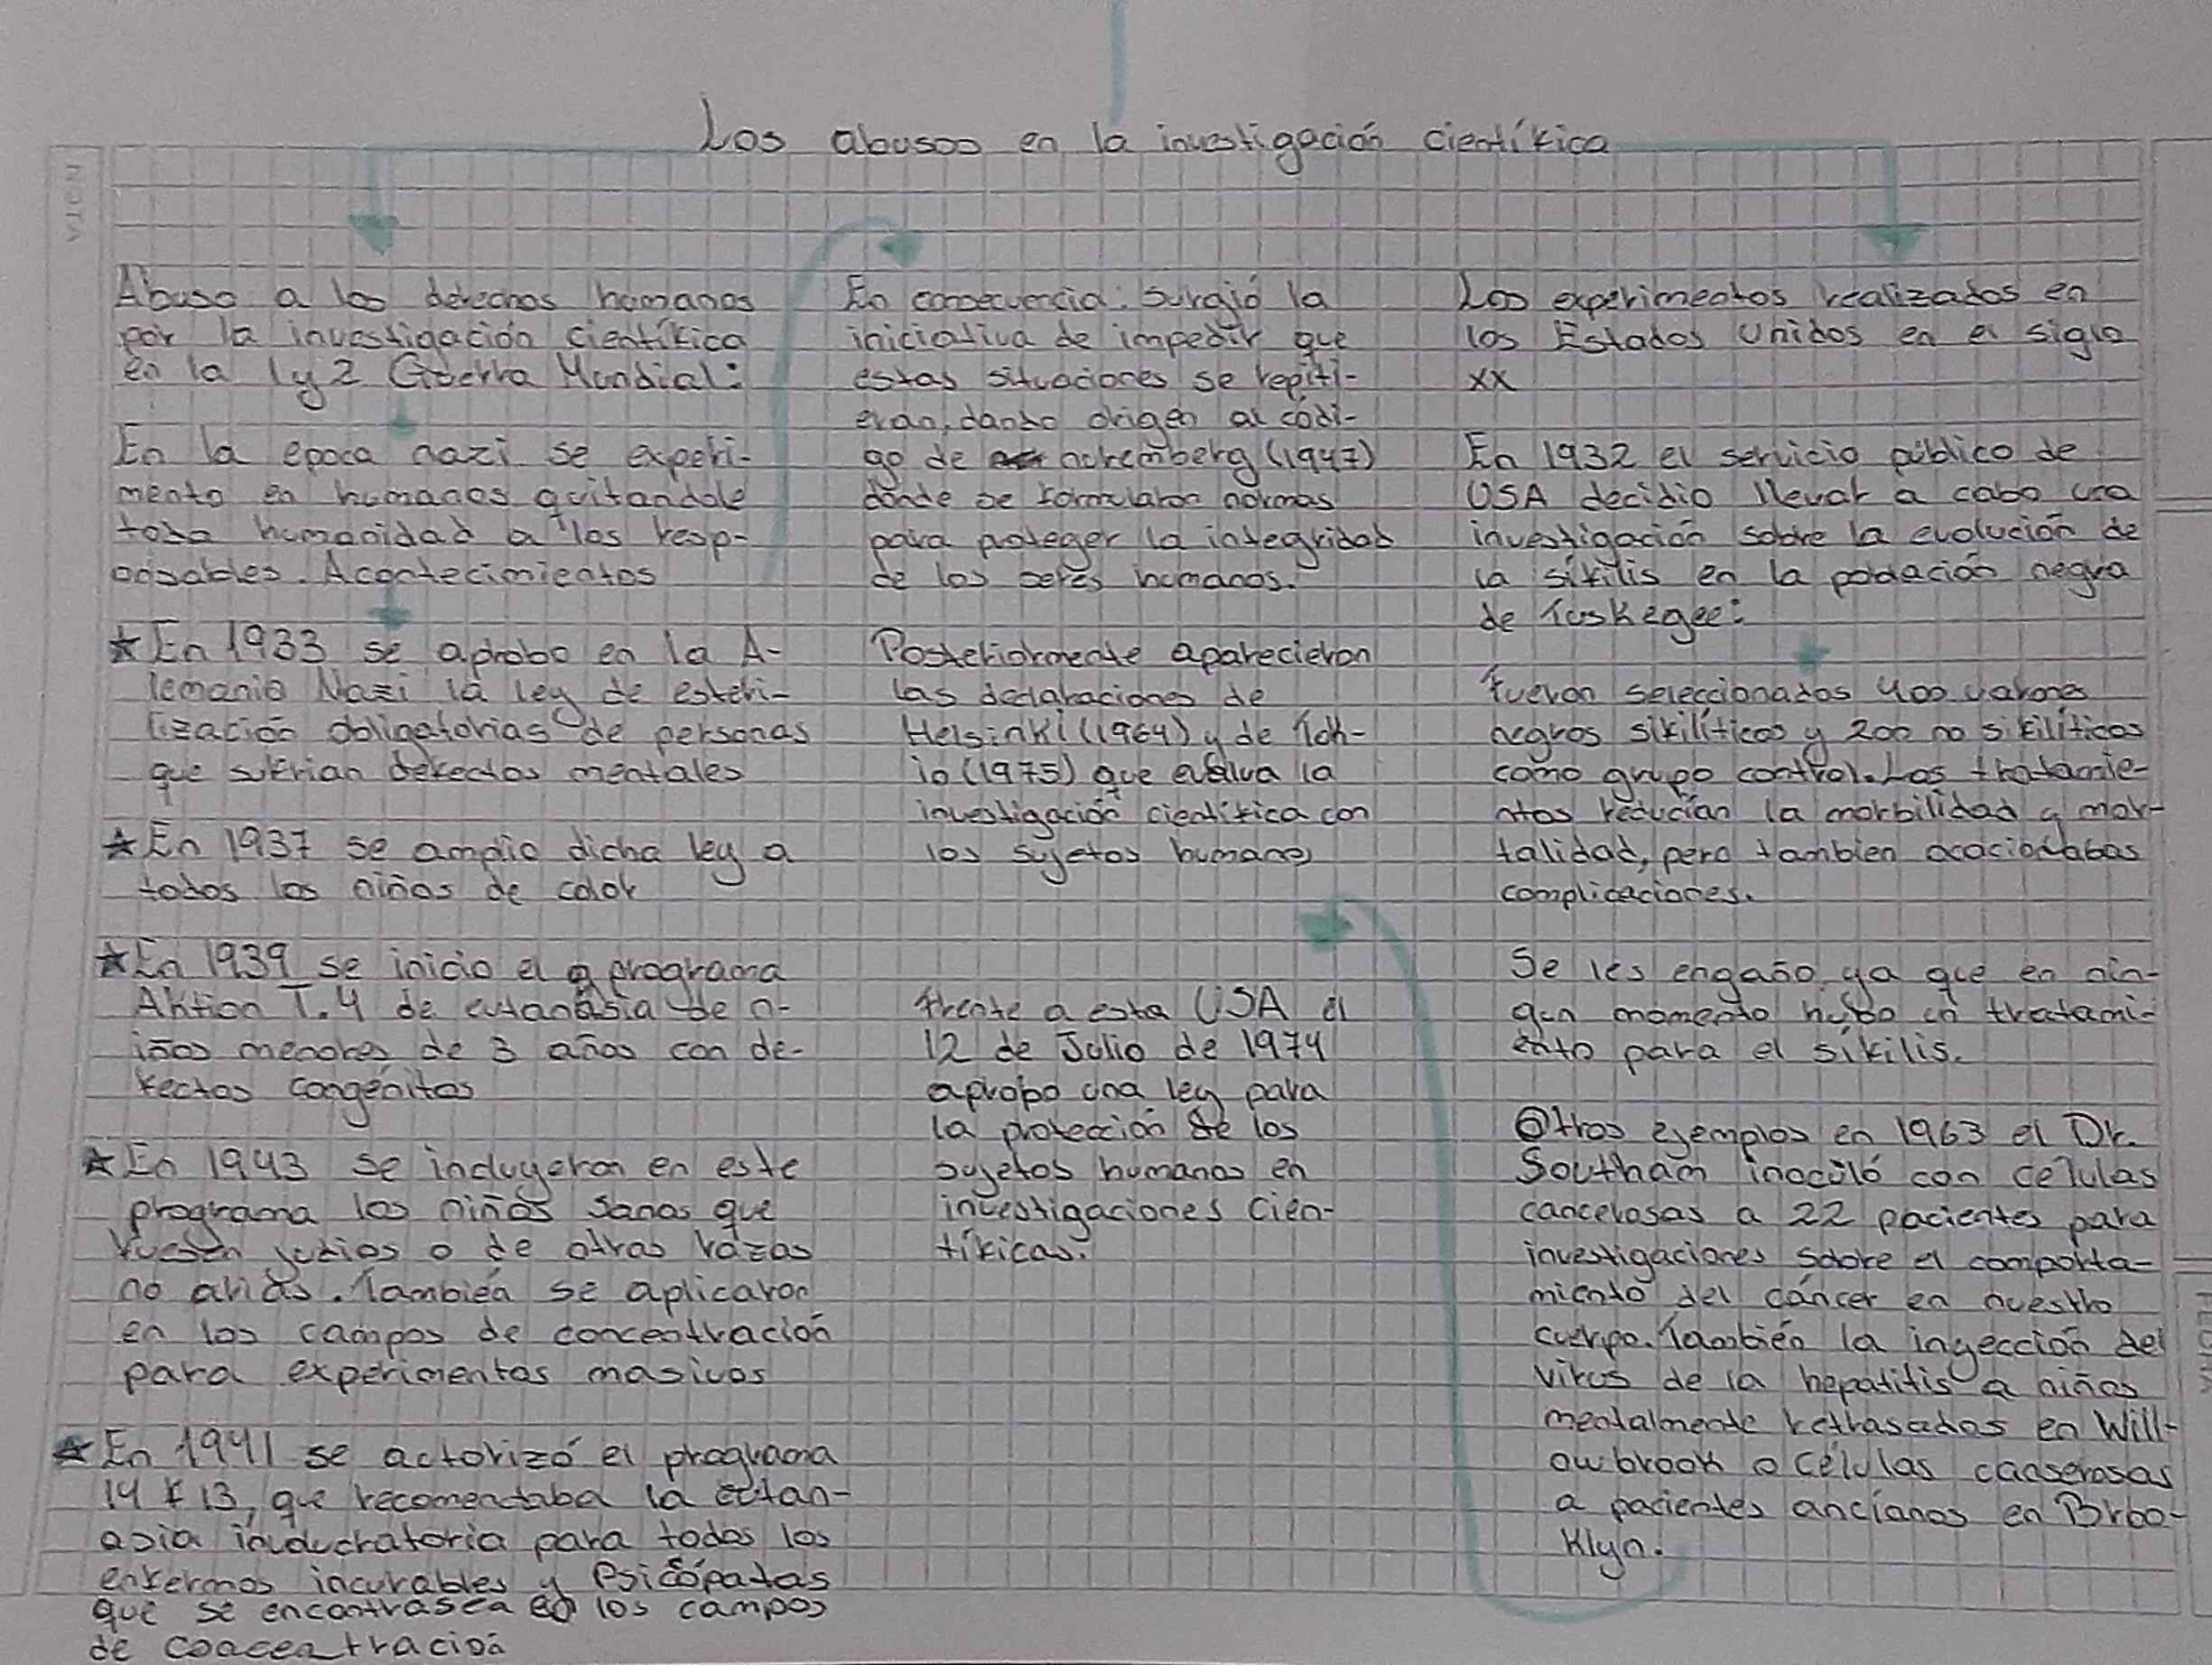 Los abusos en la investigación científica
NOTA
Abuso a los derechos humanos
por la investigación científica
en la 1 y 2 Guerra Mundial:
En la epoca nazi se experi-
mento en humanos quitandole
toda humanidad a los resp-
onsables. Acontecimientos
★ En 1933 se aprobo en la A-
lemania Nazi la ley de esteri-
lización obligatorias de personas
que sufrian defectos mentales
★ En 1937 se amplio dicha ley a
todos los niños de color
★ En 1939 se inicio el programa
Aktion T.4 de eutanasia de n-
iños menores de 3 años con de-
fectos congénitos
★ En 1943 se incluyeron en este
programa los niños sanos que
fuesen judios o de otras razas
no arias. También se aplicaron
en los campos de concentración
para experimentos masivos
★ En 1941 se actorizó el programa
14 f 13, que recomendaba la eutan-
asia
para todos los
enfermos incurables y Psicópatas
que se encontrasen en los campos
de concentración
En consecuencia, surgió la
iniciativa de impedir que
estas situaciones se repiti-
eran, dando origen al códi-
go de nuremberg (1947)
donde se formularon normas
para proteger la integridad
de los seres humanos.
Posteriormente aparecieron
las declaraciones de
Helsinki (1964) y de Tok-
io (1975) que evalua la
investigación científica con
los sujetos humanos
frente a esta USA el
12 de Julio de 1974
aprobo una ley para
la protección de los
sujetos humanos en
investigaciones cien-
tíficas.
Los experimentos realizados en
los Estados Unidos en el siglo
XX
En 1932 el servicio público de
USA decidio llevar a cabo una
investigación sobre la evolución de
la sífilis en la población negra
de Tuskegee:
fueron seleccionados 400 varones
negros sifilíticos y 200 no sifilíticos
como grupo control. Los tratamie-
ntos reducían la morbilidad y mor-
talidad, pero tambien
complicaciones.
Se les engaño ya que en nin-
gun momento hubo un tratami-
ento para el sífilis.
Otros ejemplos en 1963 el Dr.
Southam inoculó con celulas
cancerosas a 22 pacientes para
investigaciones sobre el comporta-
miento del cáncer en nuestro
cuerpo. También la inyección del
virus de la hepatitis a niños
mentalmente retrasados en Will-
owbrook o células canserosas
a pacientes ancíanos en Broo-
klyn.